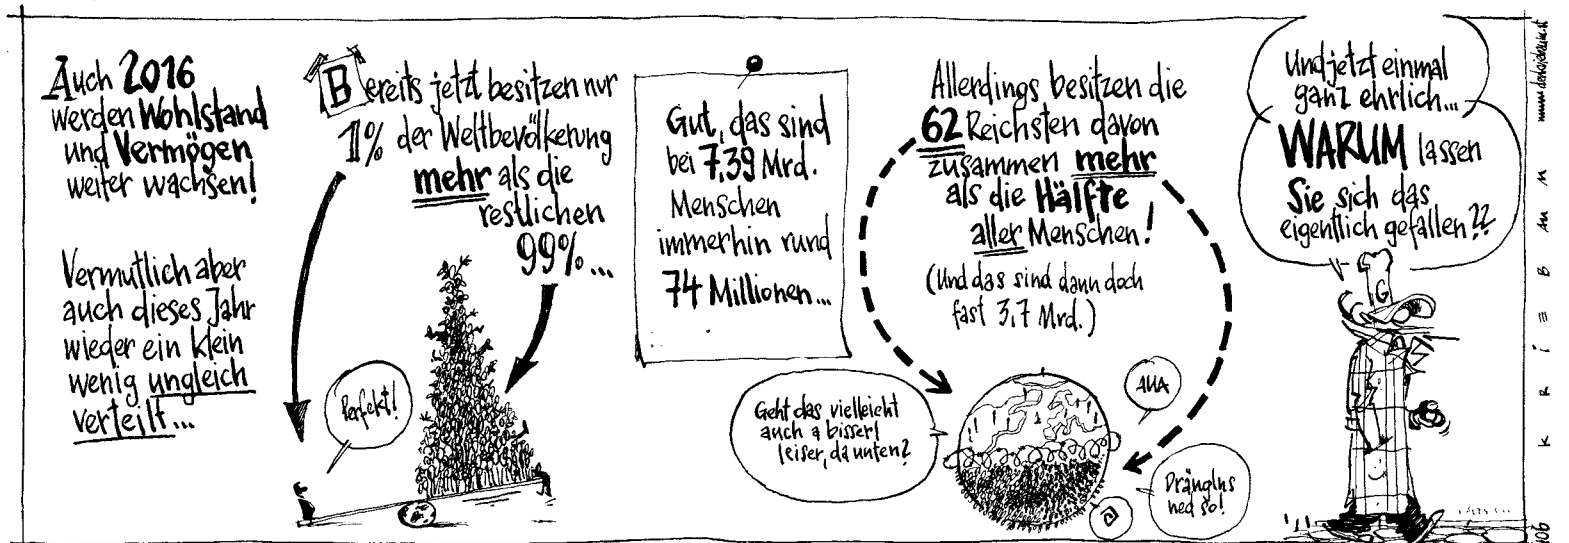 Auch 2016
werden Wohlstand
und Vermögen
weiter wachsen!
Vermutlich aber
auch dieses Jahr
wieder ein klein
wenig ungleich
verteilt...
Bereits jetzt besitzen nur
1% der Weltbevölkerung
mehr als die
restlichen
99%...
Perfekt!
Gut, das sind
bei 7,39 Mrd.
Menschen
immerhin rund
74 Millionen...
Allerdings besitzen die
62 Reichsten davon
zusammen mehr
als die Hälfte
aller Menschen!
(Und das sind dann doch
fast 3,7 Mrd.)
Geht das vielleicht
auch a bisserl
leiser, da unten?
AHA
DrängIns
ned so!
Und jetzt einmal
ganz ehrlich...
WARUM lassen
Sie sich das
eigentlich gefallen??
G
KRIEBAUM